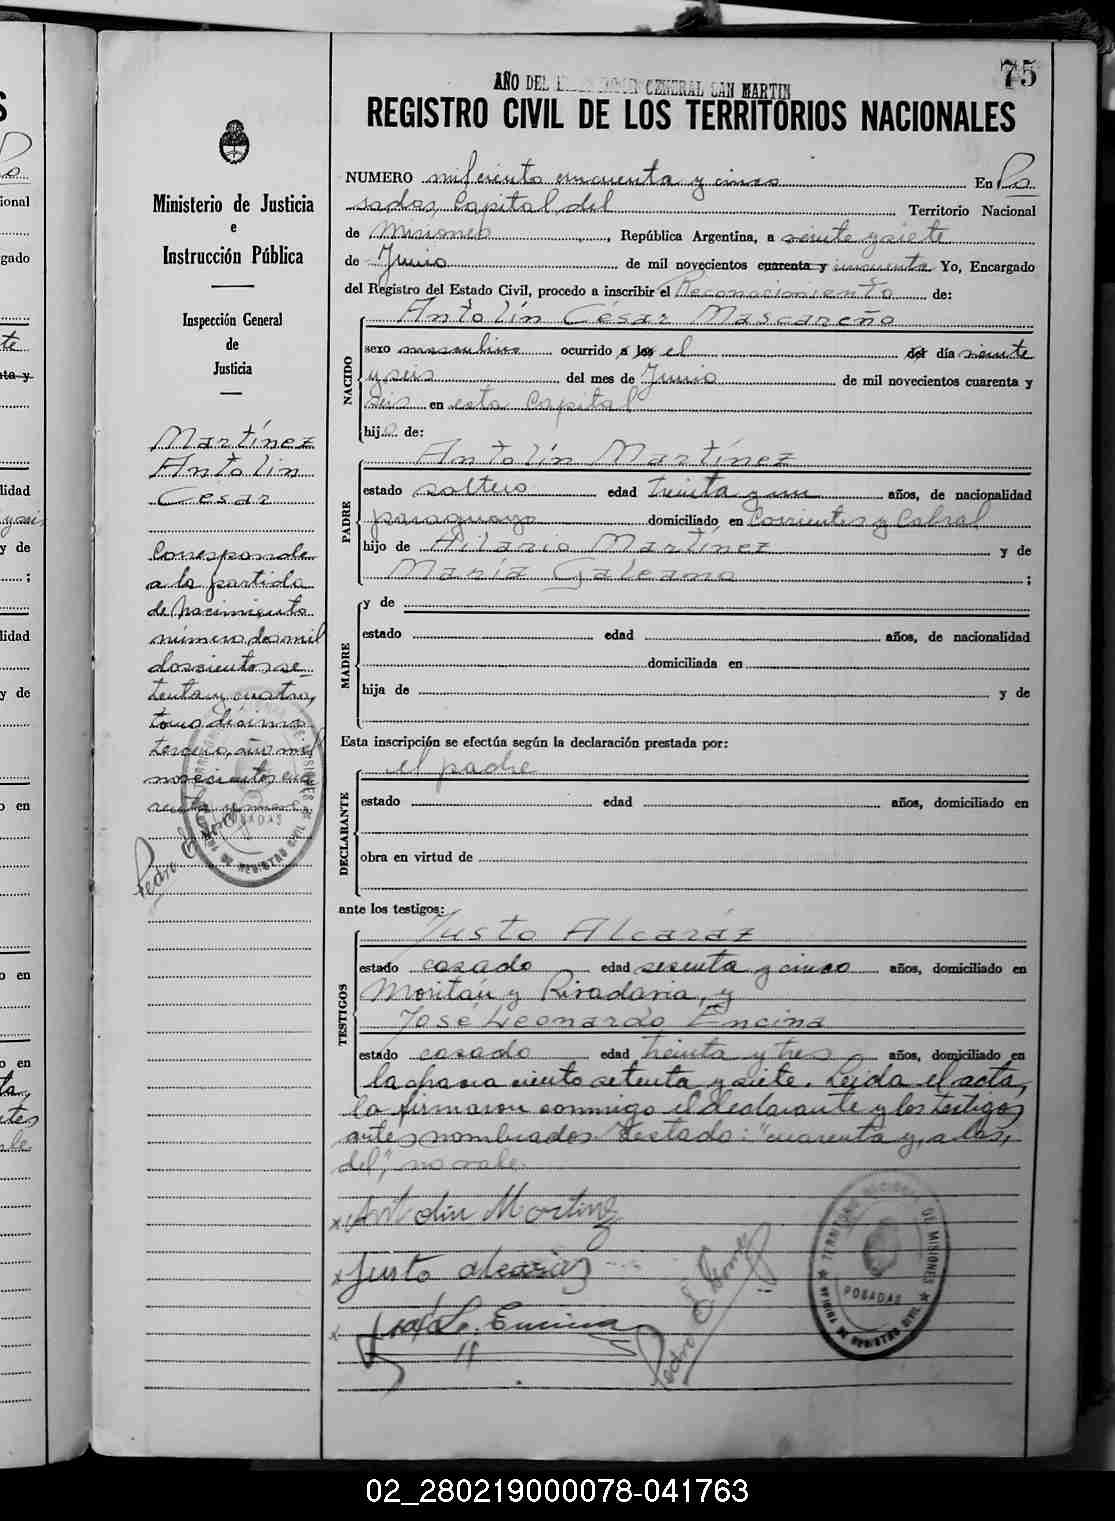 75
AÑO DEL GENERAL SAN MARTIN
REGISTRO CIVIL DE LOS TERRITORIOS NACIONALES
Ministerio de Justicia
e
Instrucción Pública
Inspección General
de
Justicia
Martínez
Antolin
César
Corresponde
a la partida
de nacimiento
número dos mil
doscientos se-
tenta y cuatro,
tomo décimo
tercero, año mil
novecientos cua
renta y
Pedro E.
NUMERO mil ciento cincuenta y cinco En Po
sadas, Capital del Territorio Nacional
de Misiones, República Argentina, a veinte y siete
de Junio de mil novecientos cuarenta y cincuenta Yo, Encargado
del Registro del Estado Civil, procedo a inscribir el Reconocimiento de:
NACIDO
Antolín César Mascareño
sexo masculino ocurrido a las el del día veinte
y seis del mes de Junio de mil novecientos cuarenta y
seis en esta Capital
hijo de:
PADRE
Antolín Martínez
estado soltero edad treinta y un años, de nacionalidad
paraguayo domiciliado en Corrientes y Cabral
hijo de Hilario Martínez y de
María Galeano ;
MADRE
y de
estado edad años, de nacionalidad
domiciliada en
hija de y de
Esta inscripción se efectúa según la declaración prestada por:
DECLARANTE
el padre
estado edad años, domiciliado en
obra en virtud de
ante los testigos:
TESTIGOS
Justo Alcaráz
estado casado edad sesenta y cinco años, domiciliado en
Moritán y Rivadavia, y
José Leonardo Encina
estado casado edad treinta y tres años, domiciliado en
la chacra ciento setenta y siete. Leída el acta,
la firmaron conmigo el declarante y los testigos
antes nombrados. Testado: "cuarenta y, a las,
del", no vale.
x Antolin Martinez
x Justo alcaráz
x José L. Encina
Pedro E.
TERRITORIO NACIONAL DE MISIONES
POSADAS
OFICINA DE REGISTRO CIVIL
02_280219000078-041763